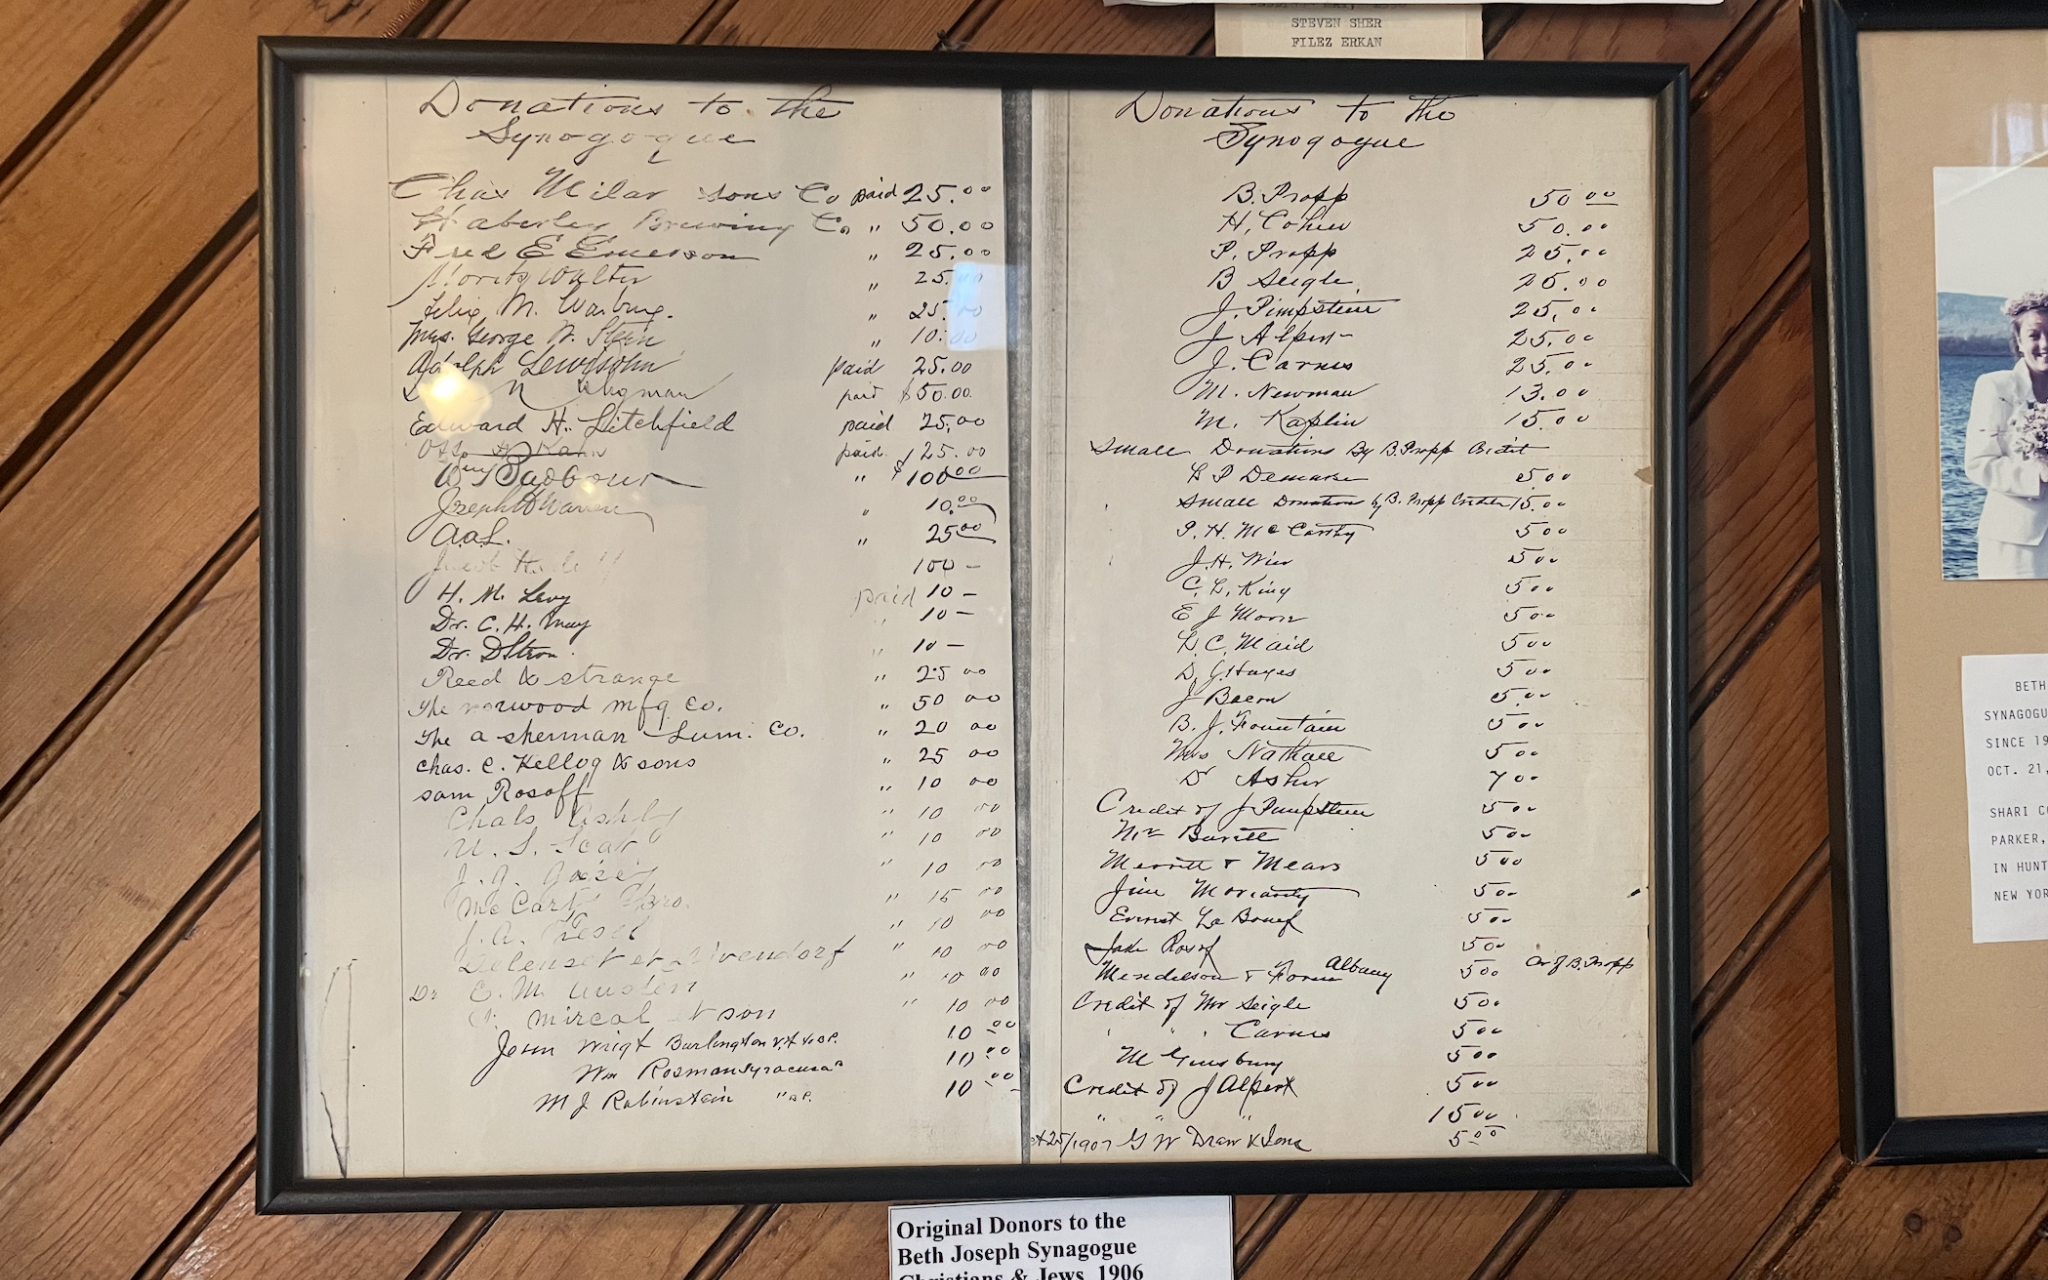 STEVEN SHER
FILEZ ERKAN
Donations to the
Synogogue
Chas Milar sons Co paid 25.00
Haberley Brewing Co " 50.00
Fred E Emerson " 25.00
Moritz Walter " 25.00
Felix M. Warburg. " 25.00
Mrs. George W. Stein " 10.00
Adolph Lewisohn paid 25.00
paid $50.00
Edward H. Litchfield paid 25.00
Otto H Kahn paid 25.00
Wm " $100.00
Joseph W Warren " 10.00
A.a.L. " 25.00
Jacob 100 -
H. M. Levy paid 10 -
Dr. C. H. May " 10 -
Dr. DStron. " 10 -
Reed & strange " 25 00
The norwood mfg Co. " 50 00
The a sherman Lum. Co. " 20 00
Chas. C. Kellog & sons " 25 00
sam Rosoff " 10 00
Chals Ashby " 10 00
" 10 00
" 10 00
Mc Carty Bro. " 15 00
" 10 00
" 10 00
Dr C. M. Austen " 10 00
son " 10 00
John Wrigt Burlington V.t 10 00
Wm Rosman Syracusa 10 00
M J Rabinstein 10 00
Donations to the
Synogogue
B. Propp 50 00
H. Cohen 50.00
P. Propp 25.00
B Seigle. 25.00
J. Pimpstein 25.00
J Alpin 25.00
J. Carnes 25.00
M. Newman 13.00
M. Kaplin 15.00
Small Donations By B. Propp Credit
L P Demars 5 00
Small Donations by B. Propp Credit 15.00
P. H. McCarthy 5 00
J. H. Wier 5 00
C. L. King 5 00
E J Moore 5 00
L. C. Maid 5 00
D. J. Hayes 5 00
J Bacon 5.00
B. J. Fountain 5 00
Mrs Nathall 5 00
Dr Asher 7 00
Credit of J Pimpstein 5 00
Mr Barett 5 00
Merritt & Mears 5 00
Jim Moriarity 5 00
Ernest La Bouef 5 00
Jake Rosof 5 00
Mendelson & Albany 5 00 Cr of B. Propp
Credit of Mr Seigle 5 00
" " " Carnes 5 00
M Ginsburg 5 00
Credit of J Alpert 5 00
" " " 15 00
25/1907 G W Draw & Sons 5.00
Original Donors to the
Beth Joseph Synagogue
Christians & Jews, 1906
BETH
SYNAGOGU
SINCE 19
OCT. 21,
SHARI C
PARKER,
IN HUNT
NEW YOR